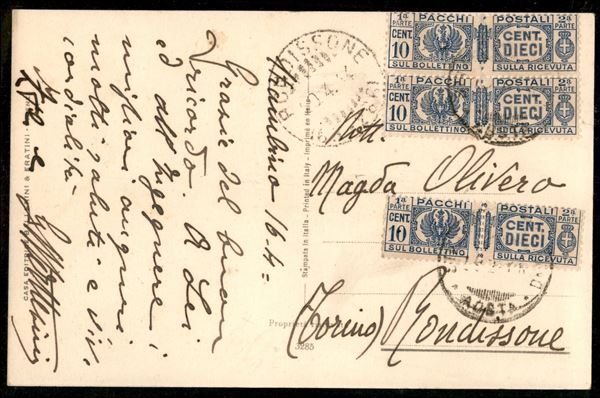 16-4=
Grazie del buon
ricordo. A Lei
ed all'Ingegnere i
migliori auguri
molti saluti e
cordialità
CASA EDITRI
INI & FRATINI
Stampata in Italia - Printed in Italy - Imprimé en Italie
Propriet
3285
RONDISSONE
1ª PARTE PACCHI POSTALI 2ª PARTE
CENT. 10 CENT. DIECI
SUL BOLLETTINO SULLA RICEVUTA
1ª PARTE PACCHI POSTALI 2ª PARTE
CENT. 10 CENT. DIECI
SUL BOLLETTINO SULLA RICEVUTA
Dott.
Magda Olivero
1ª PARTE PACCHI POSTALI 2ª PARTE
CENT. 10 CENT. DIECI
SUL BOLLETTINO SULLA RICEVUTA
AOSTA
(Torino) Rondissone